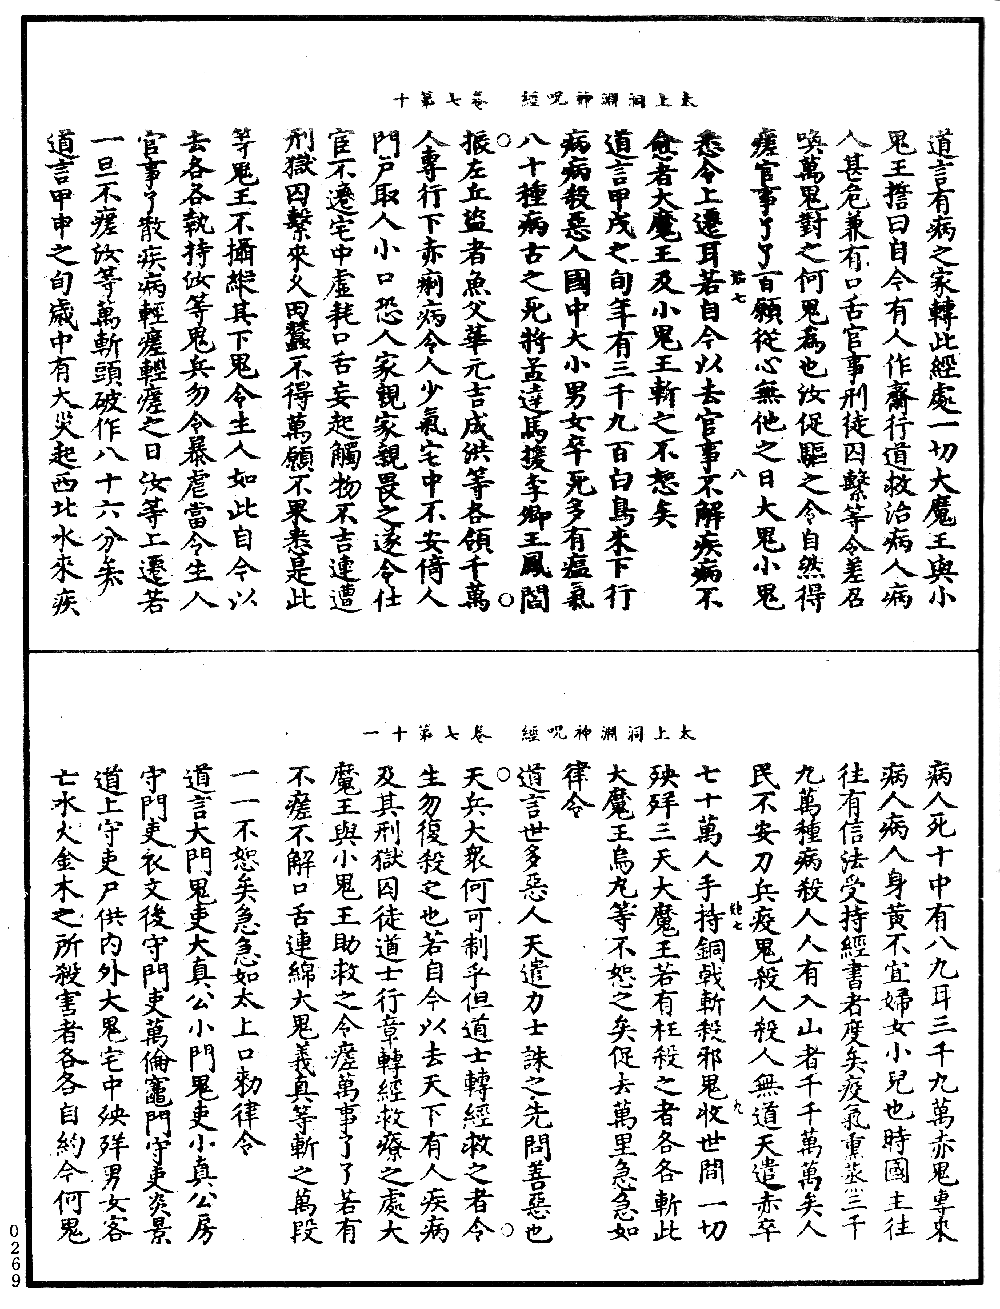 太上洞淵神呪經　卷七第十
道言有病之家轉此經處一切大魔王與小
鬼王誓曰自今有人作齋行道救治病人病
人甚危兼有口舌官事刑徒囚繫等令差召
喚萬鬼對之何鬼為也汝促驅之令自然得
瘥官事了了百願從心無他之日大鬼小鬼
悉令上遷耳若自今以去官事不解疾病不
愈者大魔王及小鬼王斬之不恕矣
道言甲戌之旬年有三千九百白鳥來下行
病病殺惡人國中大小男女卒死多有瘟氣
八十種病古之死將孟達馬援李卿王鳳閻
振左丘盜者魚父華元吉成洪等各領千萬
人專行下赤痢病令人少氣宅中不安倚人
門戶取人小口恐人家親家親畏之遂令仕
官不遷宅中虛耗口舌妄起觸物不吉連遭
刑獄囚繫來久田蠶不得萬願不果悉是此
等鬼王不攝縱其下鬼令生人如此自今以
去各各執持汝等鬼兵勿令暴虐當令生人
官事了散疾病輕瘥輕瘥之日汝等上遷若
一旦不瘥汝等萬斬頭破作八十六分矣
道言甲申之旬歲中有大災起西北水來疾
太上洞淵神呪經　卷七第十一
病人死十中有八九耳三千九萬赤鬼專來
病人病人身黃不宜婦女小兒也時國主往
往有信法受持經書者度矣疫氣熏蒸三千
九萬種病殺人人有入山者千千萬萬矣人
民不安刀兵疫鬼殺人殺人無道天遣赤卒
七十萬人手持銅戟斬殺邪鬼收世間一切
殃殍三天大魔王若有枉殺之者各各斬此
大魔王烏九等不恕之矣促去萬里急急如
律令
道言世多惡人天遣力士誅之先問善惡也
天兵大衆何可制乎但道士轉經救之者令
生勿復殺之也若自今以去天下有人疾病
及其刑獄囚徒道士行章轉經救療之處大
魔王與小鬼王助救之令瘥萬事了了若有
不瘥不解口舌連綿大鬼義真等斬之萬段
一一不恕矣急急如太上口勅律令
道言大門鬼吏大真公小門鬼吏小真公房
守門吏衣文後守門吏萬倫竈門守吏炎景
道上守吏尸供內外大鬼宅中殃殍男女客
亡水火金木之所殺害者各各自約今何鬼
0269